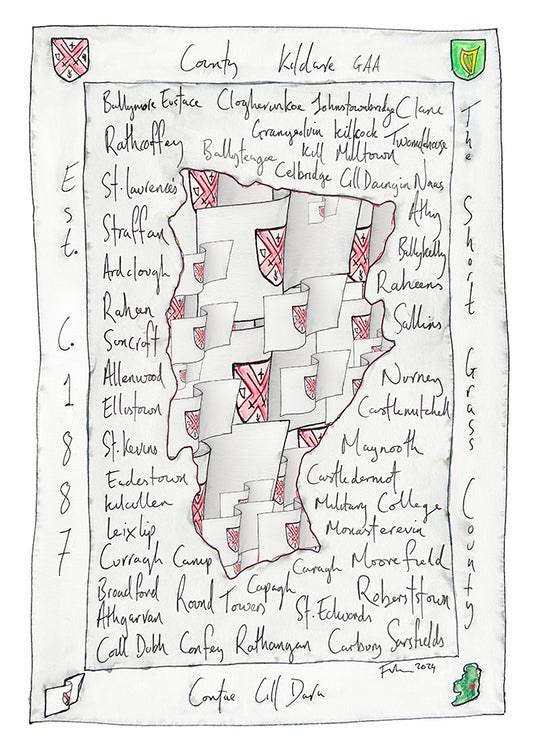 County Kildare GAA
Ballymore Eustace Clogherinkoe Johnstownbridge Clane
Rathcoffey Grangenolvin Kilcock Twomilehouse
Ballyteague Kill Milltown
St. Lawrences Celbridge Cill Daingin Naas
Straffan Athy
Ballykelly
Ardclough Raheens
Raheen Sallins
Suncroft
Allenwood Nurney
Ellistown Castlemitchell
St. Kevins Maynooth
Eadestown Castledermot
Kilcullen Military College
Leixlip Monasterevin
Curragh Camp Curragh Moorefield
Broadford Round Towers Cappagh Roberstown
Athgarvan St. Edwards
Coill Dubh Confey Rathangan Carbury Sarsfields
2024
Contae Cill Dara
Est. C. 1887
The Short Grass County